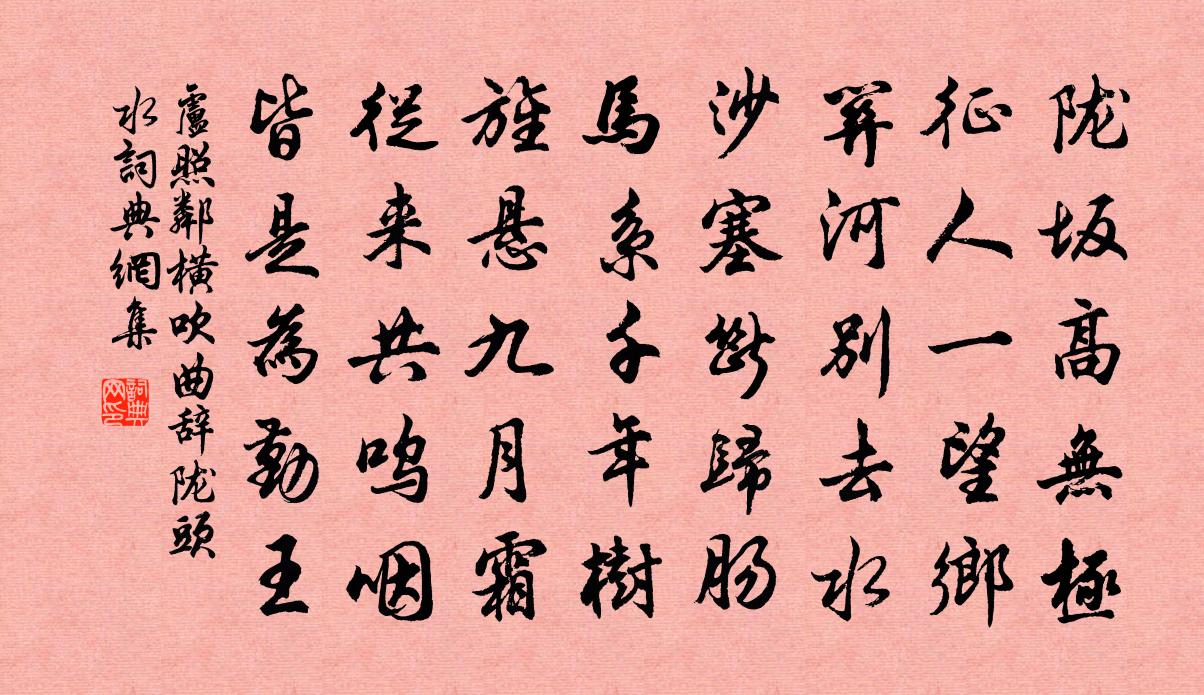 陇坂高無極
征人一望鄉
關河别去水
沙塞斷歸肠
馬系千年樹
旌悬九月霜
從来共呜咽
皆是為勤王
盧照鄰橫吹曲辞陇頭
水詞典網集
詞典网印